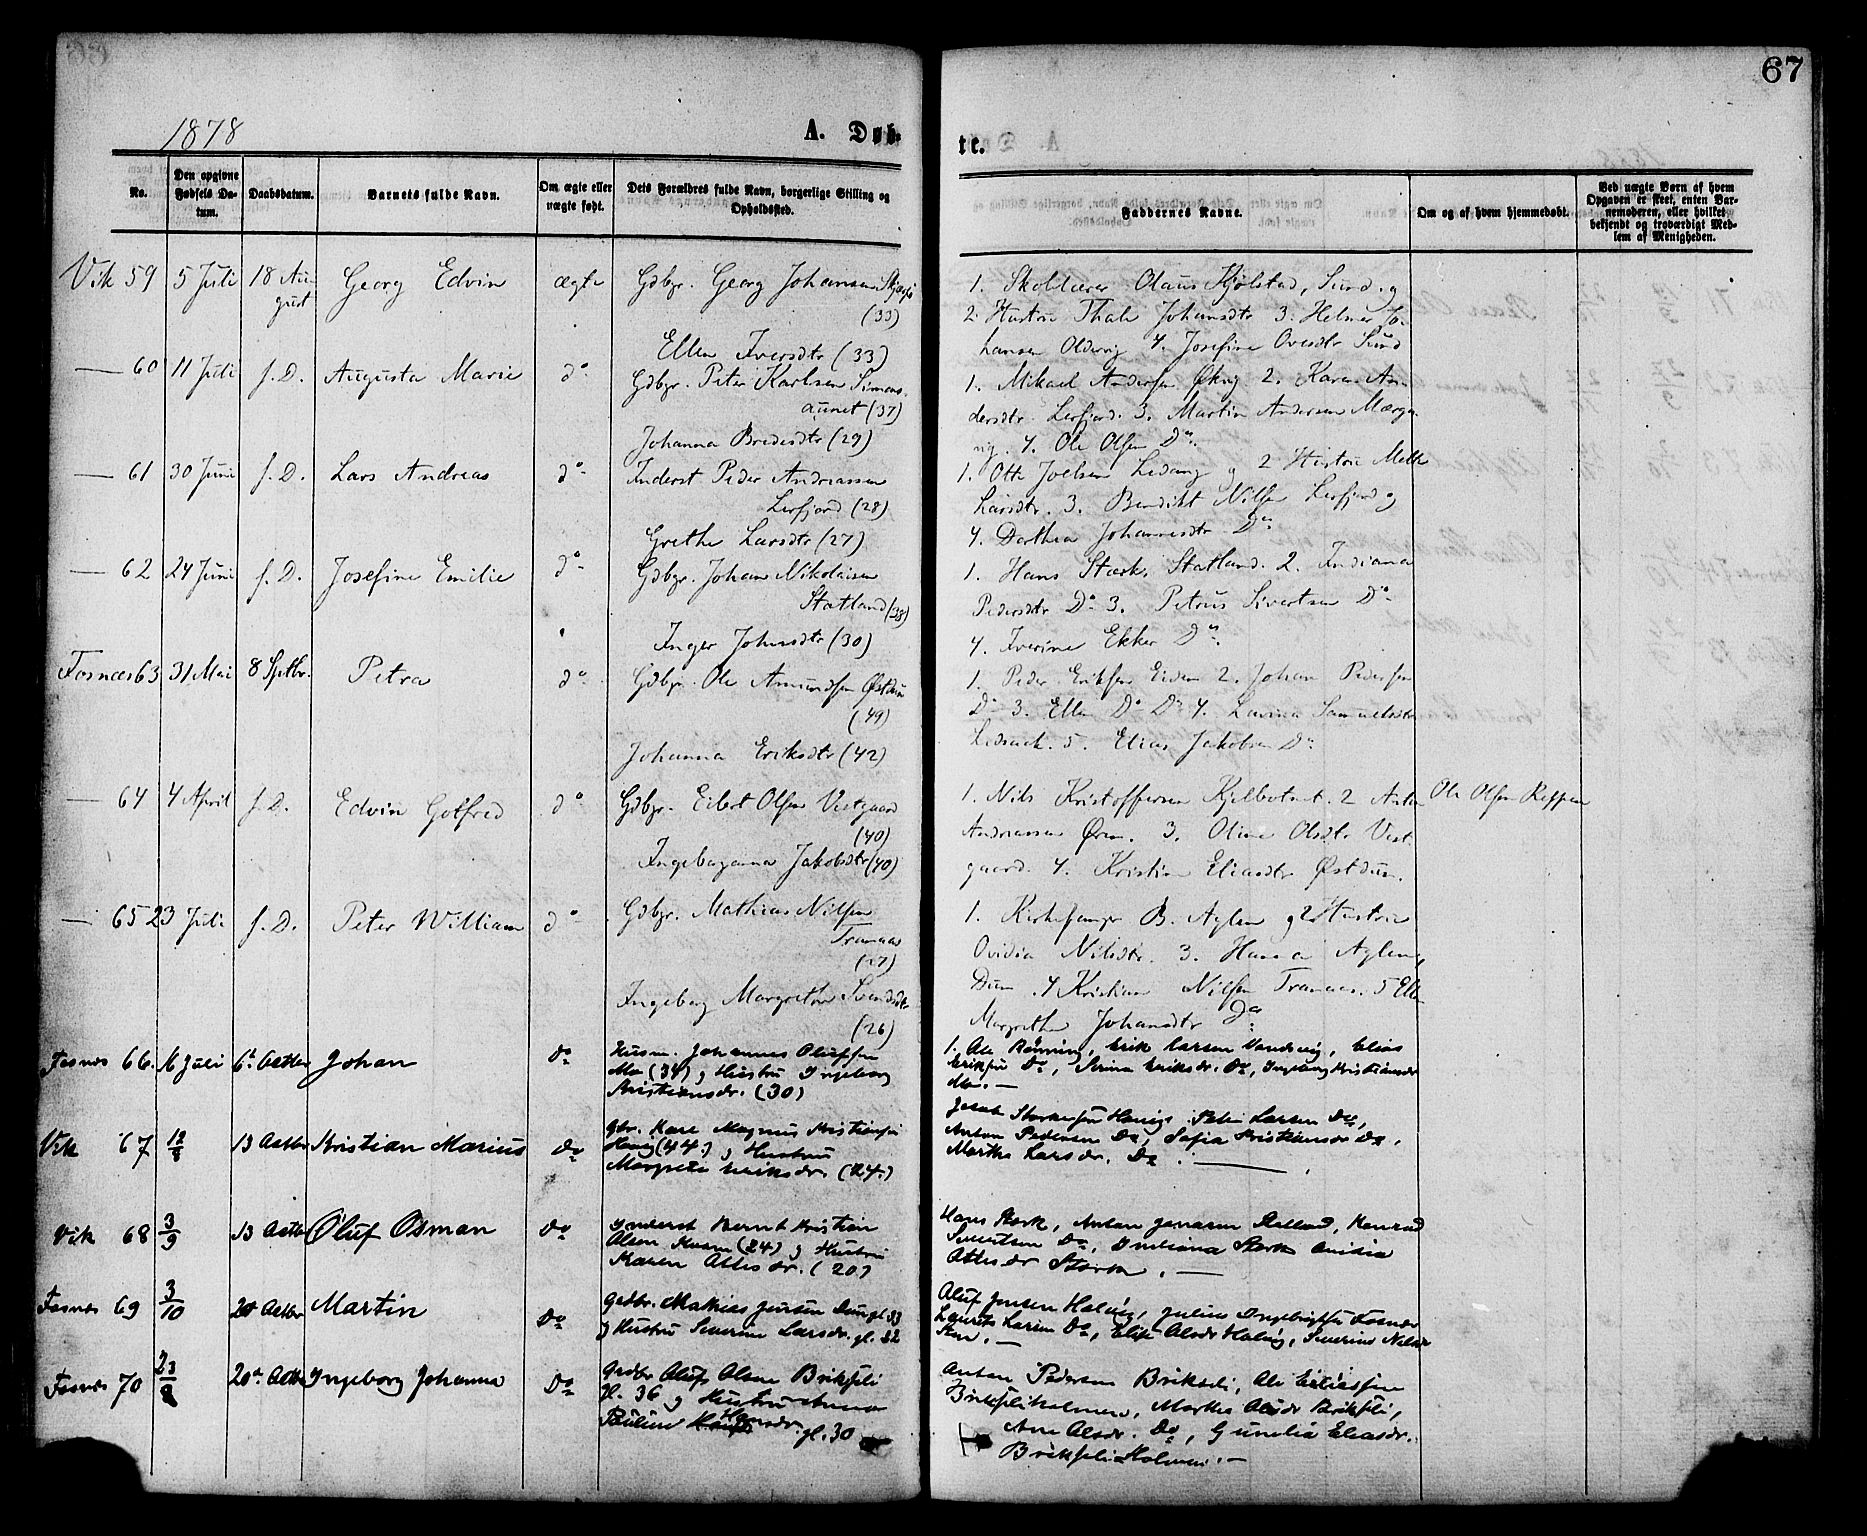 67
1878
A. Døb-
te.
No.
Den opgivne Fødsels Datum.
Daabsdatum.
Barnets fulde Navn.
Om ægte eller uægte født.
Dets Forældres fulde Navn, borgerlige Stilling og Opholdssted.
Faddernes Navne.
Om og af hvem hjemmedøbt.
Ved uægte Børn af hvem Opgaven er skeet, enten Barnemoderen, eller hvilket bekjendt og troværdigt Medlem af Menigheden.
Vik 59 5 Juli 18 August Georg Edvin ægte Gdbgr. Georg Johansen
(33)
Ellen Iversdtr (33)
1. Skolelærer Olaus Kjølstad, Sund og
2 Hustru Thale Johansdtr 3. Helmer Jo-
hansen Oldervig 4. Josefine Ovesdtr Sund
— 60 11 Juli f. D. Augusta Marie do Gdbgr. Peter Karlsen Simons-
aunet (37)
Johanna Bredesdtr (29)
1. Mikael Andersen Økvig 2. Karen An-
dersdtr Lerfjord. 3. Martin Andersen
vig. 4. Ole Olsen Do
— 61 30 Juni f. D. Lars Andreas do Inderst Peder Andreassen
Lerfjord (28)
Grethe Larsdtr (27)
1. Otto Joelsen Ledang og 2 Hustru Mette
Larsdtr. 3. Bendikt Nilsen Lerfjord og
4. Dorthea Johannesdtr Do
— 62 24 Juni f. D. Josefine Emilie do Gdbgr. Johan Nikolaisen
Statland (38)
Inger Johnsdtr (30)
1. Hans Stærk, Statland. 2. Indiana
Pedersdtr Do 3. Petrus Sivertsen Do
4. Iverine Ekker Do
Fosnæs 63 31 Mai 8 Sptbr. Petra do Gdbgr. Ole Amundsen Østduun
(49)
Johanna Eriksdtr (42)
1. Peder Eriksen Eidem 2. Johan Pedersen
Do 3. Ellen Do Do 4. Lavina Samuelsdtr
5. Elias Jakobsen Do
— 64 4 April f. D. Edvin Gotfred do Gdbgr. Eilert Olsen Vestgaard
(40)
Ingeborganna Jakobsdtr (40)
1. Nils Kristoffersen Kjelbotnet. 2 Anton
Andreassen Ørens. 3. Oline Olsdtr Vest-
gaard. 4. Kristine Eliasdtr Østduun.
Ole Olsen Reppen
— 65 23 Juli f. D. Peter William do Gdbgr. Mathias Nilsen
Tranaas
(27)
Ingeborg Margrethe Svendsdtr
(26)
1. Kirkesanger B. Aglen og 2 Hustru
Ovidia Nilsdtr. 3. Hanna Aglen,
Duun. 4 Kristian Nilsen Tranaas. 5 Ellen
Margrethe Johansdtr Do
Fosnæs 66. 16 Juli 6te Octbr Johan do Husm. Johannes Olufsen
Mo (34) og Hustru Ingeborg
Kristiansdr. (30)
1. Ole Rønning, Erik Larsen Sandvig, Elias
Eriksen Do, Serina Eriksdr. Do, Ingeborg Kristiansdr
Mo. —
Vik 67 12/8 13 Octbr Kristian Marius do Gbr. Karl Magnus Kristiansen
Hovig (44.) og Hustru
Margrete Eriksdr. (24.)
Jacob Størkersen Hovig. Peter Larsen Do,
Anton Pedersen Do, Sofia Kristiansdr Do,
Martha Larsdr. Do. —
Vik 68 3/9 13 Octbr Oluf Osman do Inderst Bernt Kristian
Olsen (24) og Hustru
Karen Ottesdr. (20)
Hans Stærk, Anton Jensen Statland, Konrad
Sivertsen Do, Indiana Stærk Ovidia
Ottesdr Stærk. —
Fosnæs 69 3/10 20 Octbr Martin do Gadbr. Mathias Jensen Duun gl. 33
og Hustru Severine Larsdr. gl. 32
Oluf Jensen Halvig, Julius Ingebrigtsen Fosnæs
Laurits Larsen Do, Elise Olsdr Halvig, Severine Nilsdr
—
Fosnæs 70 23/8 20de Octbr Ingeborg Johanna do Gadbr Oluf Olsen Brikfeli
gl. 36 og Hustru Anna
Pauline Hansdr. gl. 30
Anton Pedersen Brikfeli, Ole Eliassen
Brikfeliholmen, Martha Olsdr Brikfeli,
Ane Olsdr. Do, Gunelia Eliasdr.
Brikfeliholmen. —